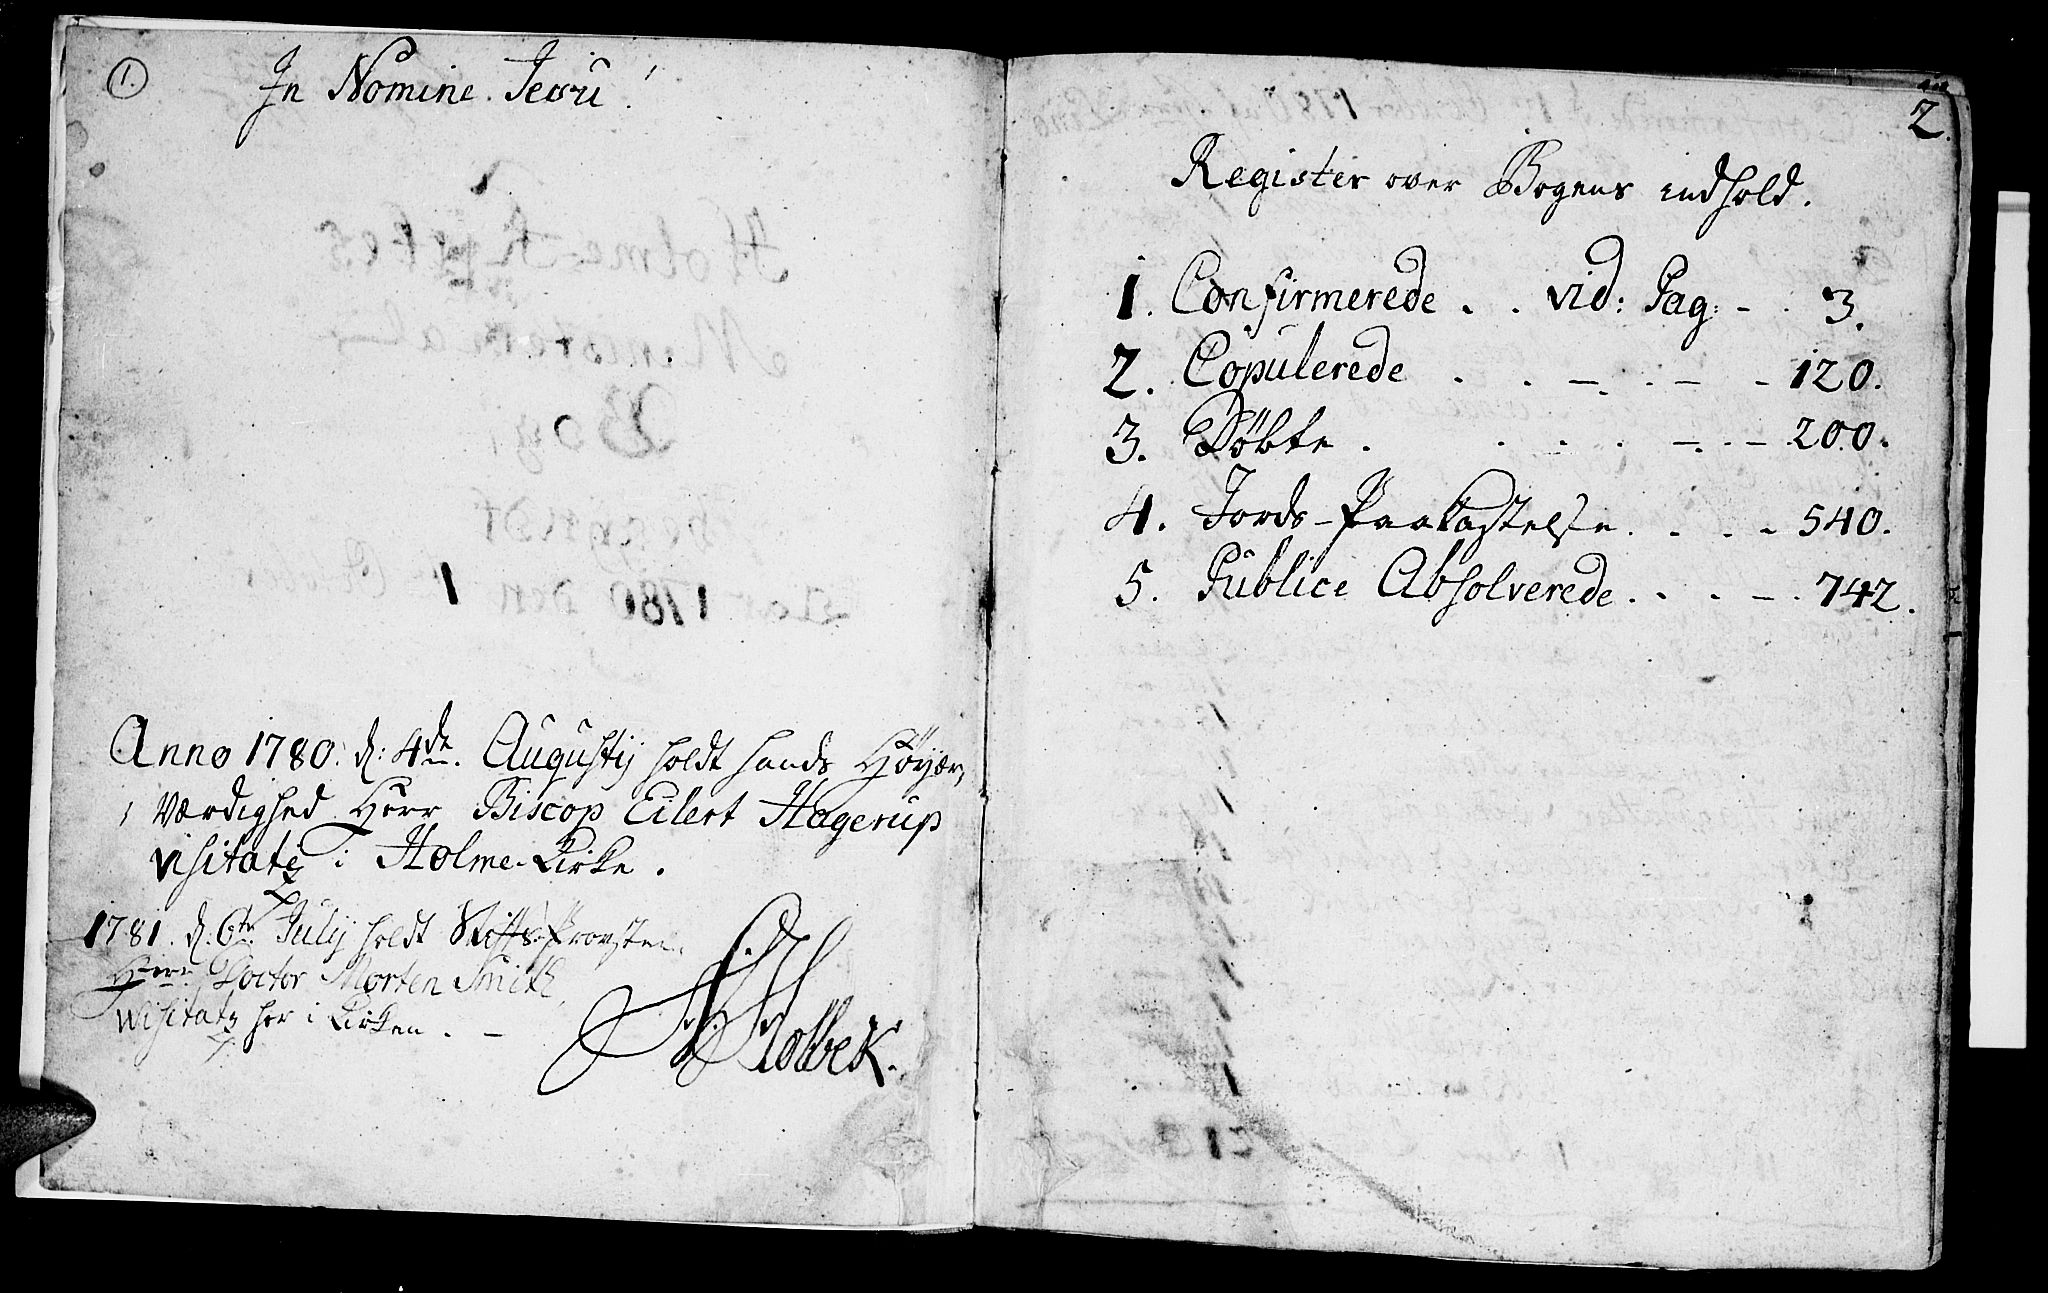 1.
In Nomine Jesu!
Anno 1780. d: 4de Augustij holdt hands Höyær,
Værdighed Herr Biscop Eilert Hagerup
visitatz i Holme-Kirke.
1781. d: 6te July holdt Stifts-Provsten
Herr Doctor Morten Smith,
Visitatz her i Kirken. -
Holbek.
2.
Register over Bogens indhold.
1. Confirmerede . . vid: Pag: - . 3.
2. Copulerede . . - . - - 120.
3. Döbte . . . . - . - 200.
4. Jords-Paakastelse . . . - 540.
5. Publice Absolverede . . . - . 742.